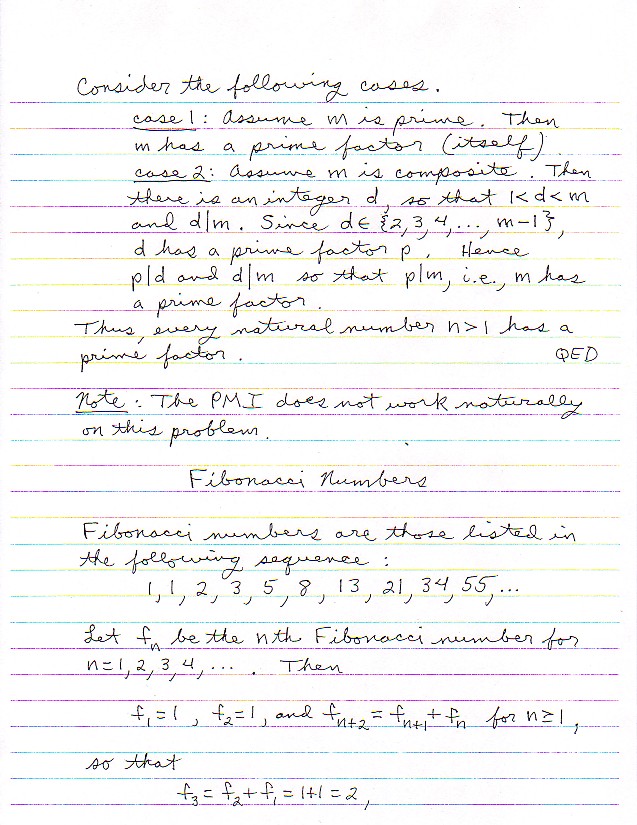 Consider the following cases.
case 1: Assume m is prime. Then
m has a prime factor (itself)
case 2: Assume m is composite. Then
there is an integer d, so that 1<d<m
and d|m. Since d∈{2,3,4,..., m-1},
d has a prime factor p. Hence
p|d and d|m so that p|m, i.e., m has
a prime factor.
Thus, every natural number n>1 has a
prime factor. QED
Note: The PMI does not work naturally
on this problem.
Fibonacci Numbers
Fibonacci numbers are those listed in
the following sequence:
1, 1, 2, 3, 5, 8, 13, 21, 34, 55, ...
Let fₙ be the nth Fibonacci number for
n=1, 2, 3, 4, .... Then
f₁=1, f₂=1, and fₙ₊₂=fₙ₊₁+fₙ for n≥1,
so that
f₃=f₂+f₁=1+1=2,